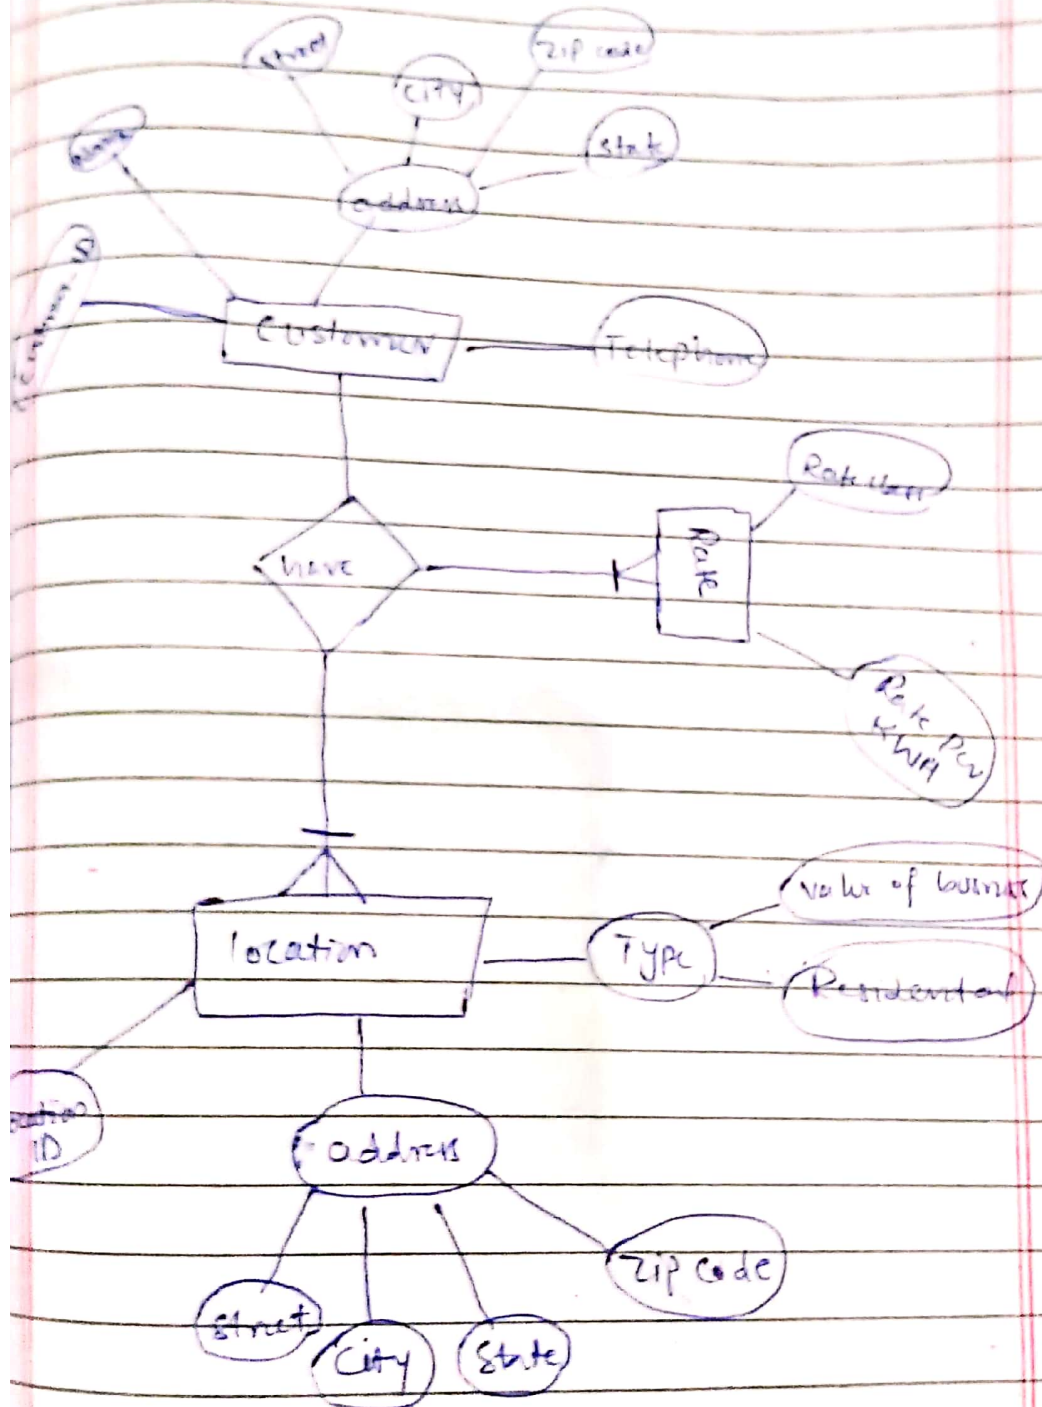 Street
Zip code
City
State
Name
address
Customer ID
Customer
Telephone
Rate class
have
Rate
Rate Per
KWH
value of business
location
Type
Residential
ocation
ID
address
Zip code
Street
City
State